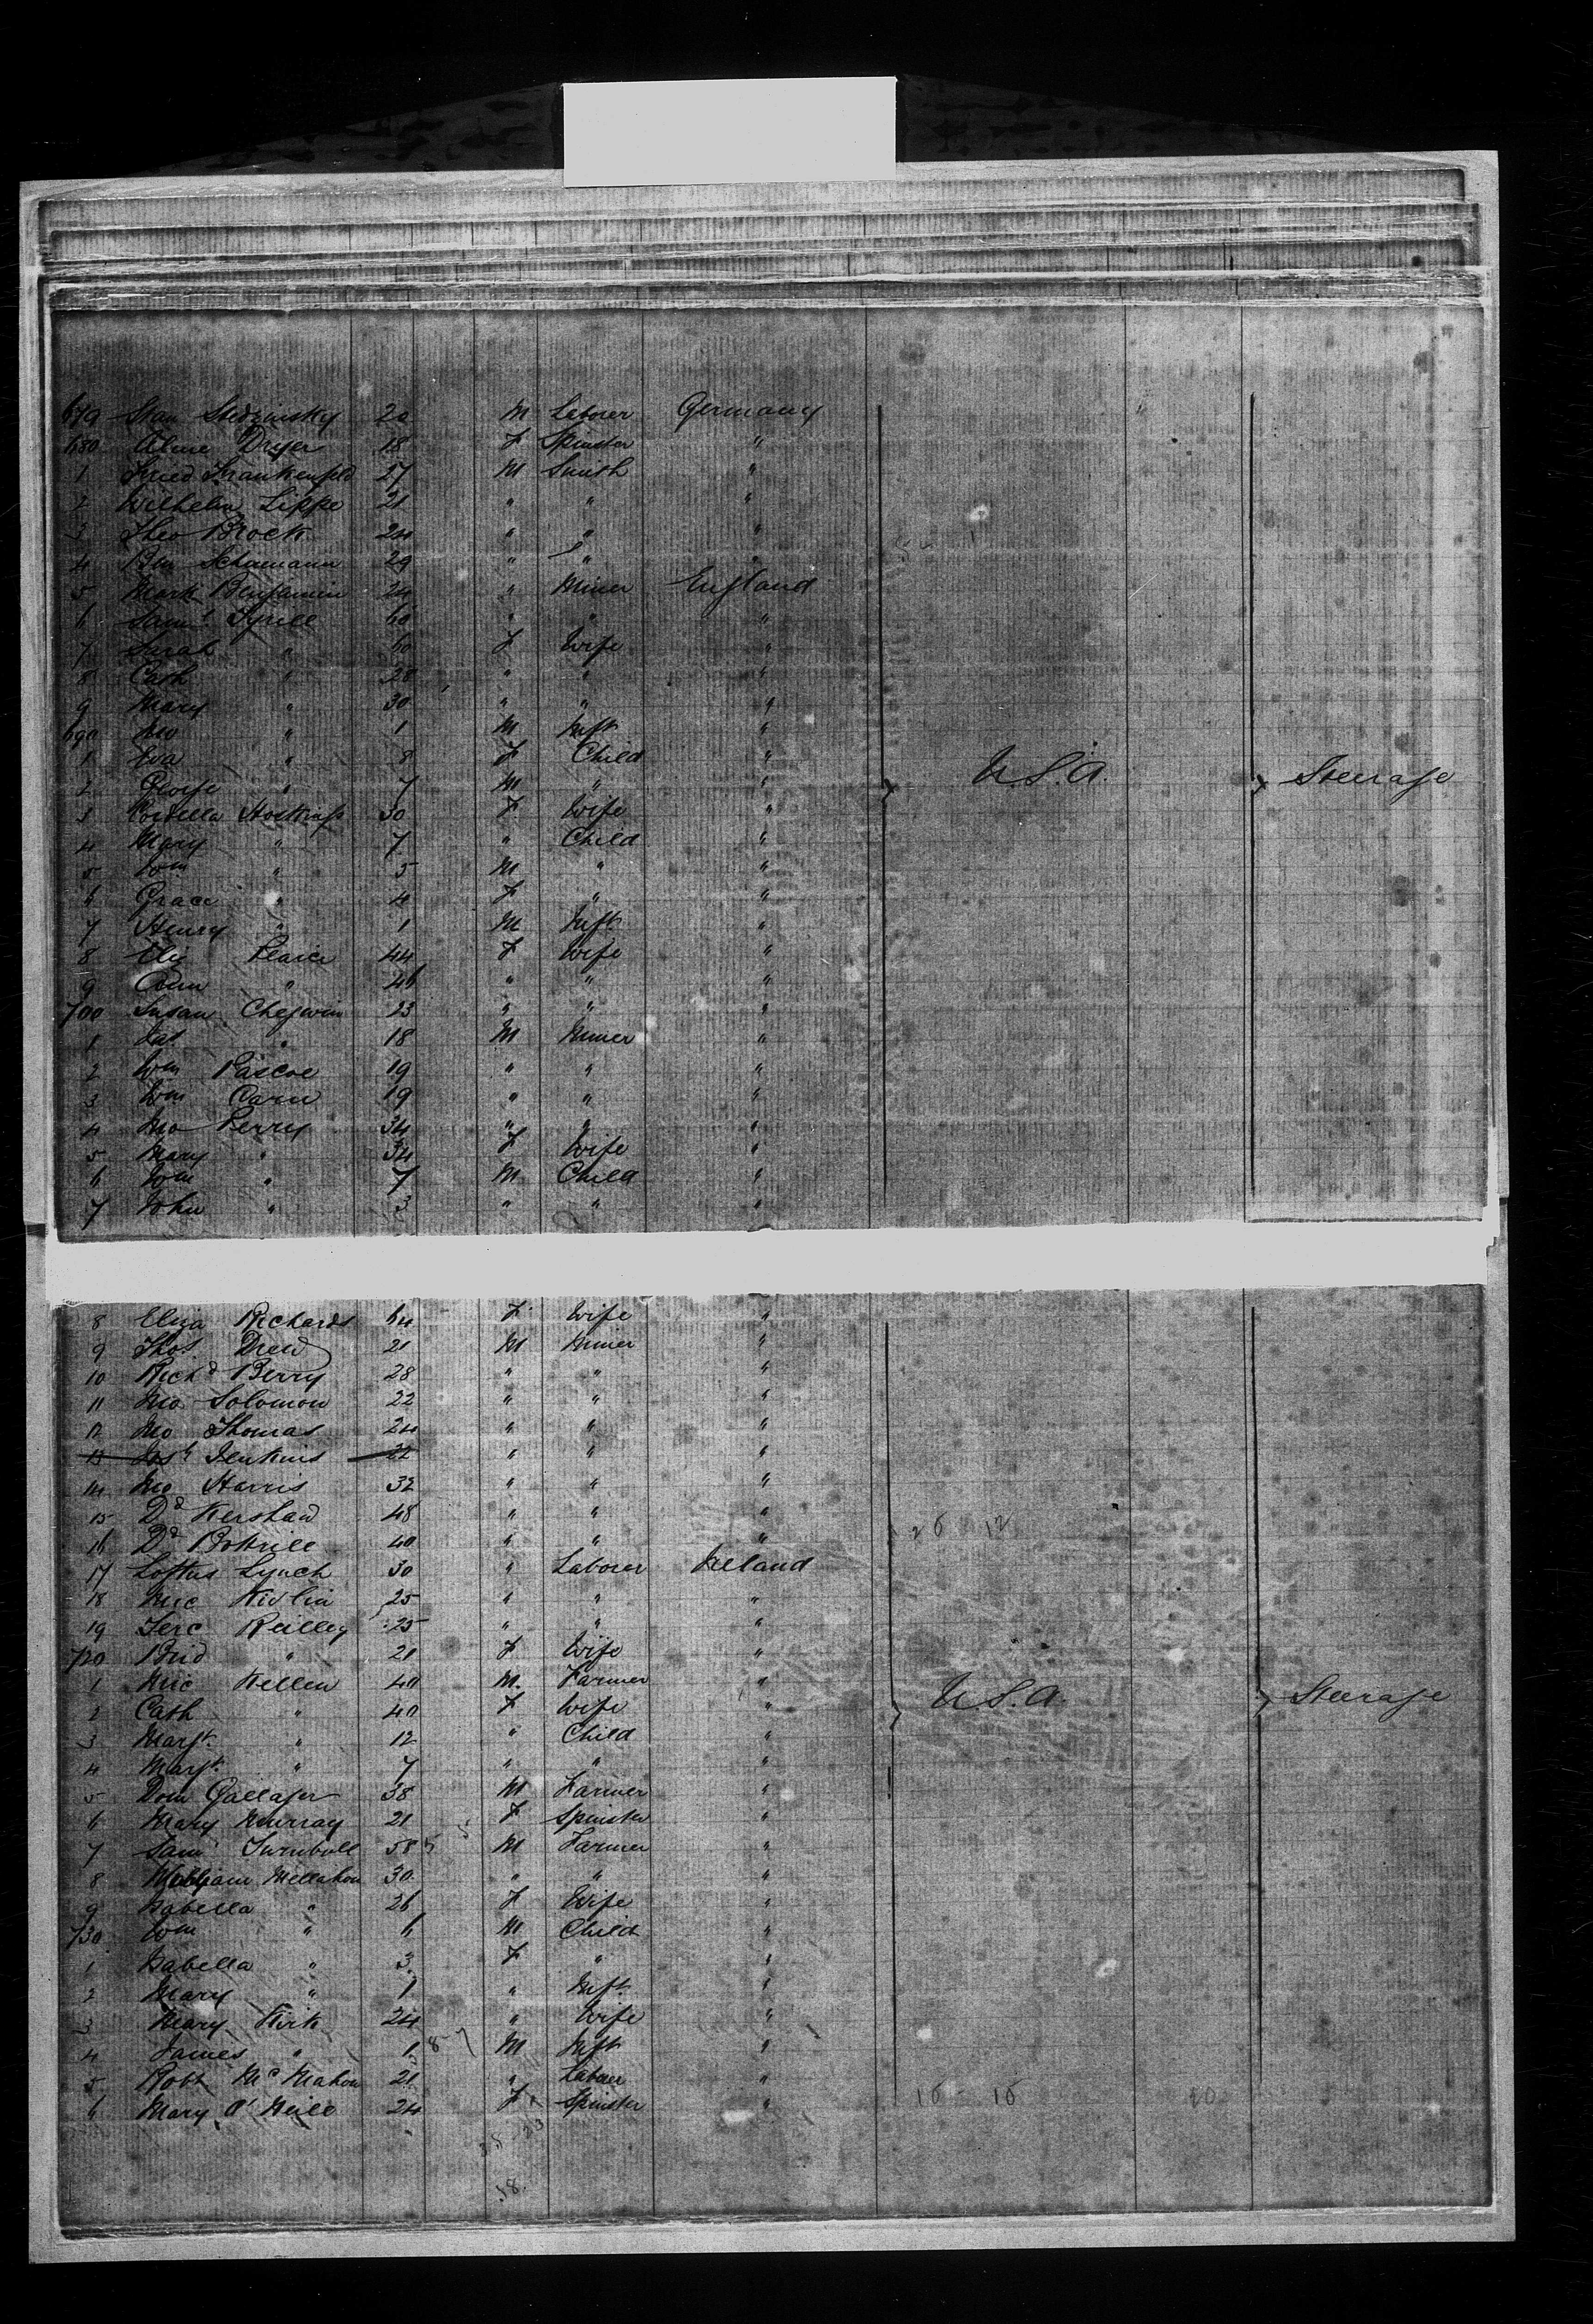 679 Stan Stedzinsky 20 M Laborer Germany
680 Dryer 18 F Spinster "
1 Fried Frankenfeld 27 M Smith "
2 Wilhelm Lippe 21 " " "
3 Theo Brock 24 " " "
4 Schumann 29 " " "
5 Mark Benjamin 24 " Miner England
6 Saml Tyrill 60 " " "
7 Sarah " 60 F Wife "
8 Cath " 28 " " "
9 Mary " 30 " " "
690 Jno " 1 M Inft "
1 Eva " 8 F Child "
2 George " 7 M " "
U.S.A. Steerage
3 Cordella Hoskings 30 F Wife "
4 Mary " 7 " Child "
5 Wm " 5 M " "
6 Grace " 4 F " "
7 Henry " 1 M Inft "
8 Eliz Pearce 44 F Wife "
9 Ann " 46 " " "
700 Susan Chegwin 23 " " "
1 Jas " 18 M Miner "
2 Wm Pascoe 19 " " "
3 Wm Carn 19 " " "
4 Jno Perry 34 " " "
5 Mary " 34 F Wife "
6 Wm " 7 M Child "
7 John " 3 " " "
8 Eliza Richards 64 F Wife "
9 Thos Drew 21 M Miner "
10 Richd Berry 28 " " "
11 Jno Solomon 22 " " "
12 Jno Thomas 24 " " "
13 Josh Jenkins 22 " " "
14 Jno Harris 32 " " "
15 Dd Kershaw 48 " " "
16 Dd Bottrill 40 " " " 26 12
17 Loftus Lynch 30 " Laborer Ireland
18 Mic 25 " " "
19 Terc Reilley 25 " " "
720 Brid " 21 F Wife "
1 Mic Kellen 40 M. Farmer "
2 Cath " 40 F Wife "
U.S.A. Steerage
3 Margt " 12 " Child "
4 Margt " 7 " " "
5 Dom Gallager 38 M Farmer "
6 Mary Murray 21 F Spinster "
7 Saml Turnbull 58 M Farmer "
8 William McMahon 30 " " "
9 Isabella " 26 F Wife "
730 Wm " 6 M Child "
1 Isabella " 3 F " "
2 Mary " 1 " Inft "
3 Mary Kirk 24 " Wife "
4 James " 1 8 7 M Inft "
5 Robt McMahon 21 " Laborer "
6 Mary O'Neill 24 F Spinster " 16 - 16 20
18